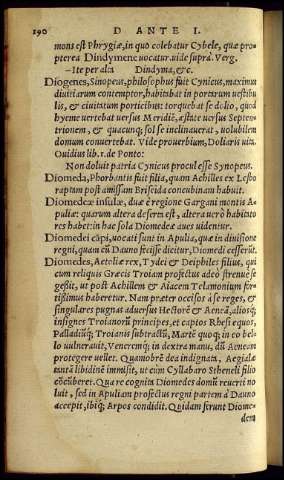 190 D ANTE I.
mons est Phrygiæ, in quo colebatur Cybele, quæ pro-
pterea Dindymene uocatur. uide supra. Verg.
–Ite per alta Dindyma, &c.
Diogenes, Sinopeus, philosophus fuit Cynicus, maximus
diuitiarum contemptor, habitabat in portarum uestibu
lis, & ciuitatum porticibus: torquebat se dolio, quod
hyeme uertebat uersus Meridiē, æstate uersus Septen-
trionem, & quacunq; sol se inclinauerat, uolubilem
domum conuertebat. Vide prouerbium, Doliaris uita.
Ouidius lib. 1. de Ponto:
Non doluit patria Cynicus procul esse Synopeus.
Diomeda, Phorbantis fuit filia, quam Achilles ex Lesbo
raptam post amissam Briseida concubinam habuit.
Diomedeæ insulæ, duæ è regione Gargani montis A-
puliæ: quarum altera deserta est, altera uerò habitato
res habet: in hac sola Diomedeæ aues uidentur.
Diomedei cāpi, uocati sunt in Apulia, quæ in diuisione
regni, quam cū Dauno fecisse dicitur, Diomedi cesserūt.
Diomedes, Aetoliæ rex, Tydei & Deiphiles filius, qui
cum reliquis Græcis Troiam profectus adeò strenue se
gessit, ut post Achillem & Aiacem Telamonium for-
tissimus haberetur. Nam præter occisos à se reges, &
singulares pugnas aduersus Hectorē & Aeneā, aliosq;
insignes Troianorū principes, et captos Rhesi equos,
Palladiūq; Troianis subractū, Martē quoq; in eo bel-
lo uulnerauit, Veneremq; in dextra manu, dū Aeneam
protegere uellet. Quamobrē dea indignata, Aegialæ
tantā libidinē immisit, ut cum Cyllabaro Stheneli filio
cōcūberet. Qua re cognita Diomedes domū reuerti no
luit, sed in Apuliam profectus regni partem à Dauno
accepit, ibiq; Arpos condidit. Quidam ferunt Diome-
dem